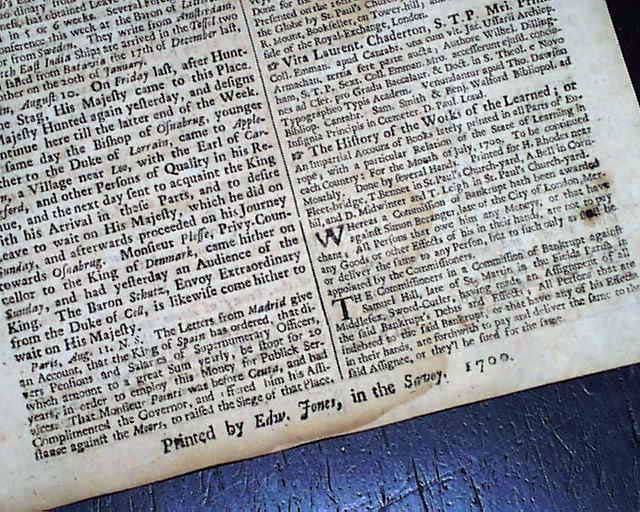 in 5 or 6 weeks. Several
Conference, this week at the Baron
They write from Amsterdam,
are arrived in the Texel two
Batavia the 17th of December last,
of January.
August 20. On Friday last, after Hunt-
the Stag, His Majesty came to this Place.
Majesty Hunted again yesterday, and designs
continue here till the latter end of the Week.
same day the Bishop of Osnabrug, younger
Brother to the Duke of Lorrain, came to Apple-
a Village near Loo, with the Earl of Car-
and other Persons of Quality in his Re-
tinue, and the next day sent to acquaint the King
with his Arrival in these Parts, and to desire
leave to wait on His Majesty, which he did on
Sunday, and afterwards proceeded on his Journey
towards Osnabrug. Monsieur Plesse, Privy-Coun-
cellor to the King of Denmark, came hither on
Sunday, and had yesterday an Audience of the
King. The Baron Schutz, Envoy Extraordinary
from the Duke of Cell, is likewise come hither to
wait on His Majesty.
Paris, Aug. 11. N. S. The Letters from Madrid give
an Account, that the King of Spain has ordered, that di-
vers Pensions and Salaries of Supernumerary Officers,
which amount to a great Sum yearly, be stopt for 20
years, in order to employ this Money for Publick Ser-
vices. That Monsieur Pointis was before Ceuta, and had
Complimented the Governor, and offered him his Assi-
stance against the Moors, to raise the Siege of that Place.
the Globe by St. Paul's
K. Mount, Bookseller, on Tower-hill;
side of the Royal-Exchange, London.
☞ Vita Laurent. Chaderton, S. T. P. Mri. Primi
Coll. Emman. apud Cantabr. una cum vit. Jac. Usserii Archiep.
Armachan. tertia fere parte aucta, Authore Wilhel. Dilling-
ham, S. T. P.
Typographeo
Bibliop. Cantabr. Sam. Smith, & Benj. Walford Bibliopol. ad
Insignia Principis in Cœmeterio D. Paul. Lond.
☞ The History of the Works of the Learned; or
An Impartial Account of Books lately printed in all Parts of Eu-
rope, with a particular Relation of the State of Learning in
each Country. For the Month of July, 1700. To be continued
Monthly. Done by several Hands. Printed for H. Rhodes near
Fleet-bridge, T. Bennet in St. Paul's Church-yard, A. Bell in Corn-
hil, and D. Midwinter and T. Leigh in St. Paul's Church-yard.
WHereas a Commission of Bankrupt hath been awarded
against Simon Beranger, late of the City of London, Mer-
chant, All Persons that owe him any Money, or that have
any Goods or other Effects of his in their hands, are not to pay
or deliver the same to any Person, but to such only as shall be
appointed by the Commissioners.
THE Commissioners in a Commission of Bankrupt against
Samuel Hill, late of St. Martin in the Fields
Middlesex, Sword-Cutler, having made an Assignment of all
the said Bankrupt's Debts and Effects; All Persons that are
indebted to the said Bankrupt, or that have any of his Effects
in their hands, are forthwith to pay and deliver the same to the
said Assignee, or they'l be sued for the same.
Printed by Edw. Jones, in the Savoy. 1700.